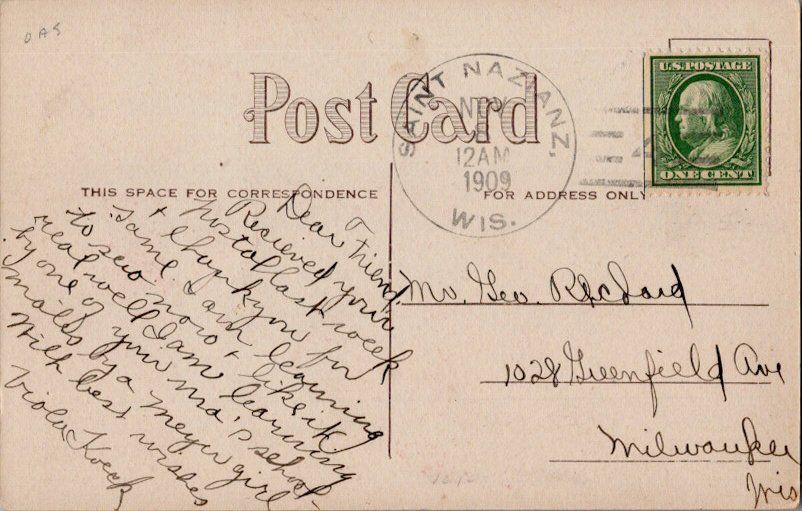 OAS
Post Card
SAINT NAZIANZ,
NOV
12AM
1909
WIS.
U.S. POSTAGE
ONE CENT
THIS SPACE FOR CORRESPONDENCE
FOR ADDRESS ONLY
Dear Friend,
Recieved your
Postal last week
+ thank you for
same. I am learning
to sew now + like it
real well I am learning
by one of your ma's school
mates by a Meyer girl.
With best wishes
Viola Kock
Mr. Geo. Richard
1028 Greenfield Ave
Milwaukee
Wis